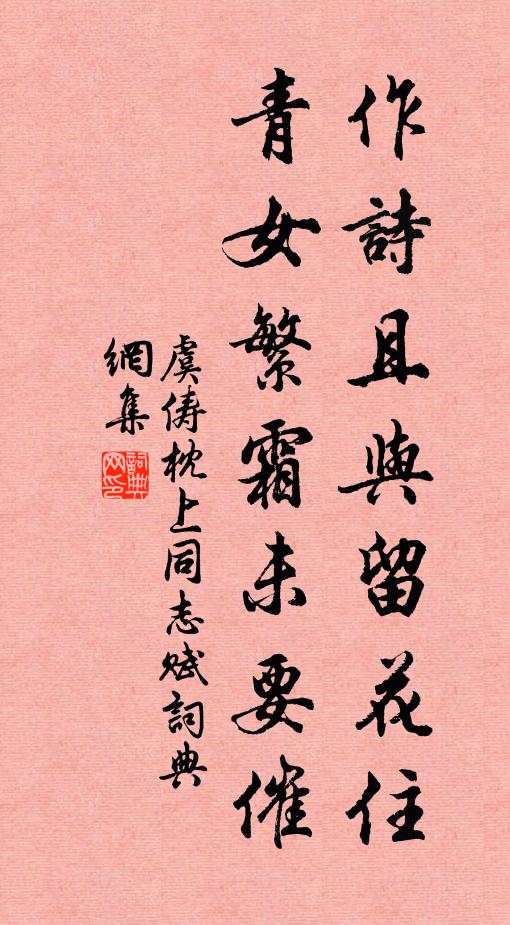 作詩且與留花住
青女繁霜未要催
虞儔枕上同志賦詞典
網集
詞典
网印